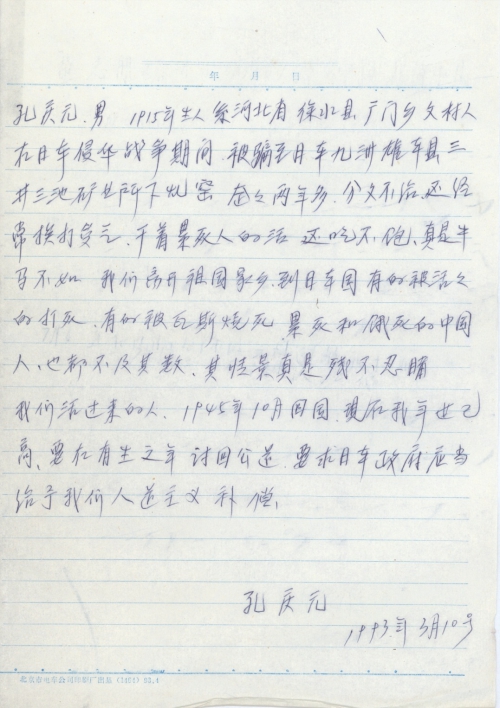 年 月 日
孔庆元.男 1915年生人系河北省徐水县户门乡文村人
在日本侵华战争期间.被骗至日本九洲雄本县三
井三池矿业所下坑窑 整整两年多.分文不给.还经
常挨打受气.干着累死人的活 还吃不饱、真是牛
马不如 我们离开祖国家乡.到日本国有的被活活
的打死.有的被瓦斯烧死.累死和饿死的中国
人、也都不及其数、其情景真是残不忍睹
我们活过来的人.1945年10月回国.现在我年世已
高、要在有生之年 讨回公道.要求日本政府应当
给予我们人道主义 补偿.
孔庆元
1993年3月10号
北京市电车公司印刷厂出品